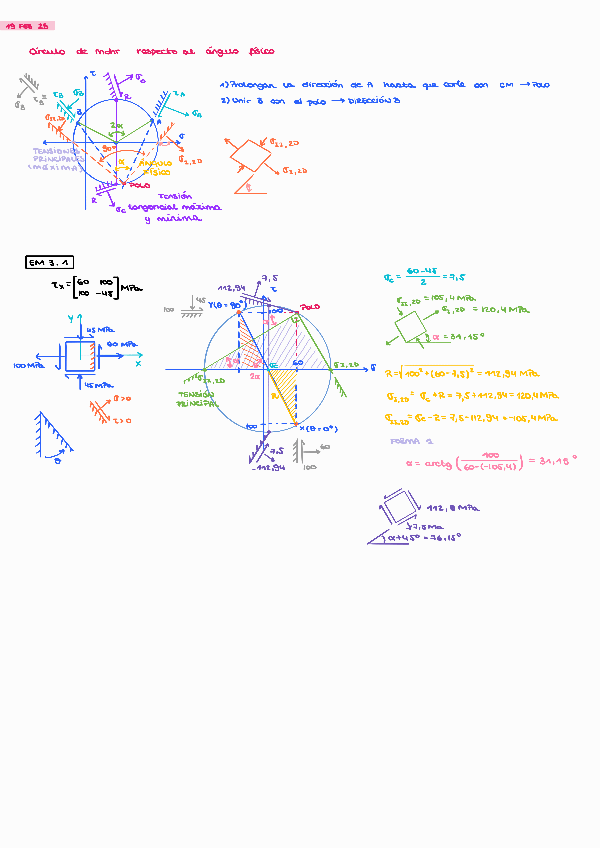 19 FEB 25
Círculo de Mohr respecto al ángulo físico
1) Prolongar la dirección de A hasta que corte con CM → POLO
2) Unir B con el polo → DIRECCIÓN B
τ
σ
B
A
R
2α
90°
α
σ_B
τ_B
τ_A
σ_A
σ_II,2D
σ_I,2D
TENSIONES
PRINCIPALES
(MÁXIMAS)
ÁNGULO
FÍSICO
POLO
R
σ_c
TENSIÓN
tangencial máxima
y mínima
σ_II,2D
σ_I,2D
EM 3.1
τ_x = [60 100
100 -45] MPa
y
45 MPa
60 MPa
x
100 MPa
45 MPa
σ>0
τ>0
θ
7,5
112,94
τ
45
100
Y(θ=90°)
100
POLO
60
σ
2α
R
σ_II,2D
σ_I,2D
TENSIÓN
PRINCIPAL
100
X(θ=0°)
7,5
-112,94
60
100
σ_c = (60-45)/2 = 7,5
σ_II,2D = 105,4 MPa
σ_I,2D = 120,4 MPa
α = 31,15°
R = √(100² + (60-7,5)²) = 112,94 MPa
σ_I,2D = σ_c + R = 7,5 + 112,94 = 120,4 MPa
σ_II,2D = σ_c - R = 7,5 - 112,94 = -105,4 MPa
FORMA 2
α = arctg (100/(60-(-105,4))) = 31,15°
112,9 MPa
7,5 MPa
α+45° = 76,15°